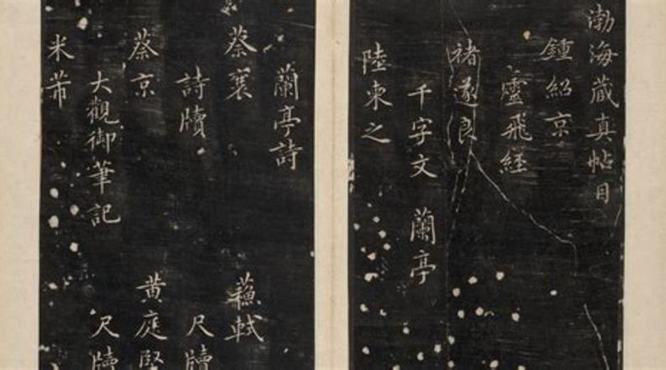 渤海藏真帖目
鍾紹京
靈飛經
褚遂良
千字文 蘭亭
陸柬之
蘭亭詩
蔡襄 蘓軾
詩牘 尺牘
蔡京 黃庭堅
大觀御筆記 尺牘
米芾